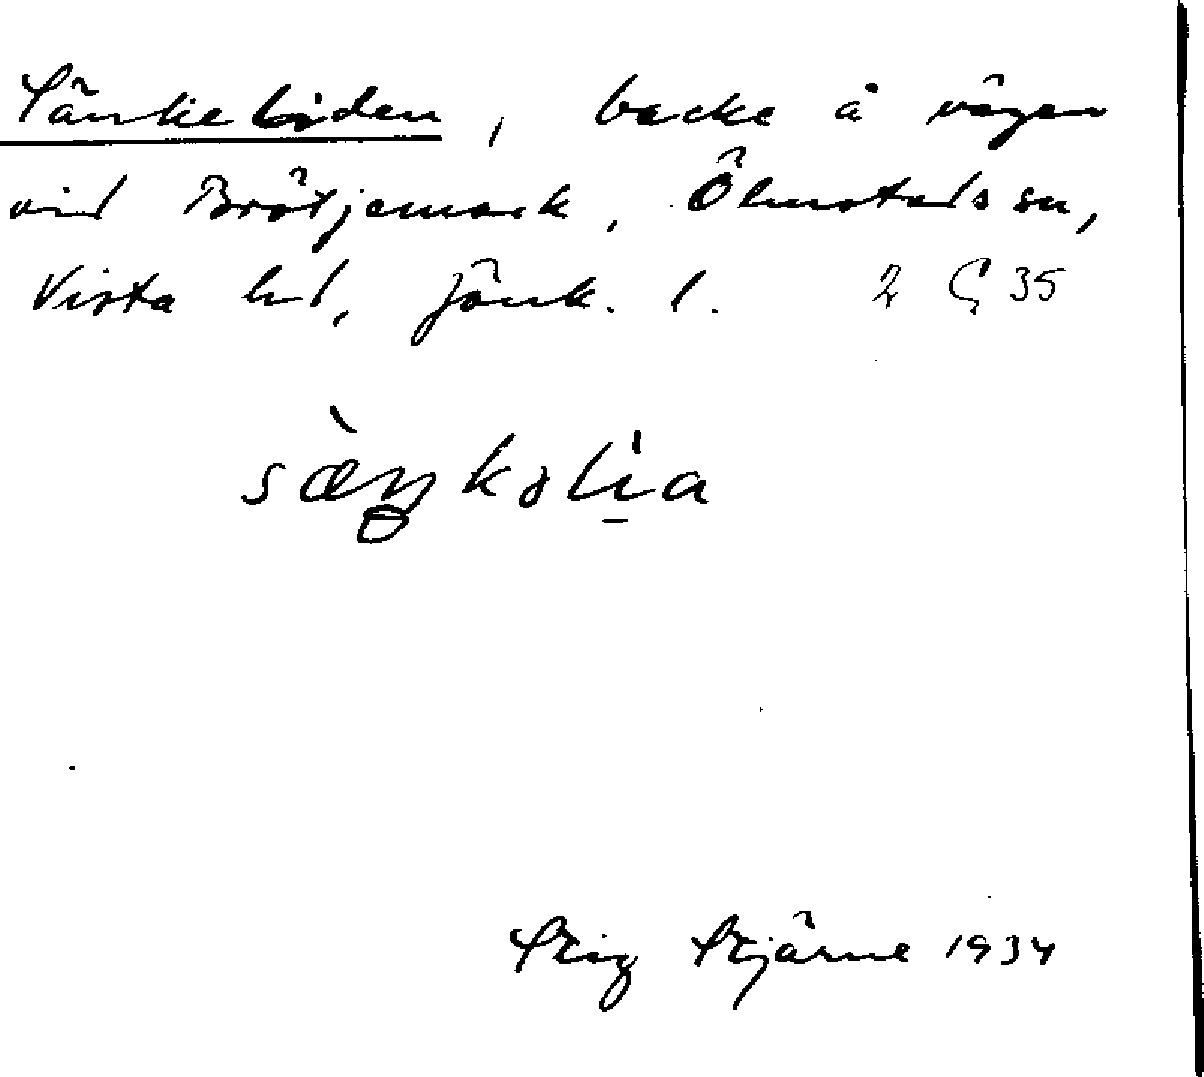 Sänkeliden, backe å vägen
vid Brötjemark, Ölmstads sn,
Vista hd, Jönk. l. 2 Ç 35
sæ̀ŋkəli̱a
Stig Stjärne 1934